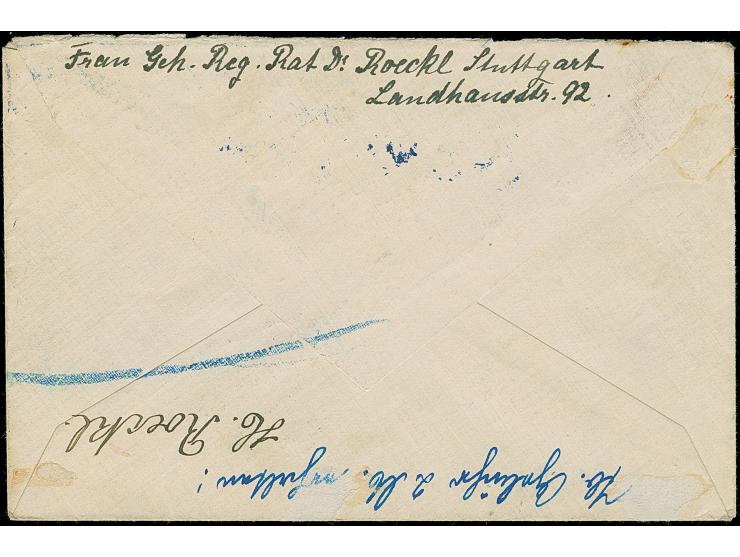 Frau Geh. Reg. Rat Dr Roeckl Stuttgart
Landhausstr. 92.
H. Roeckl.
2 M. erhalten!